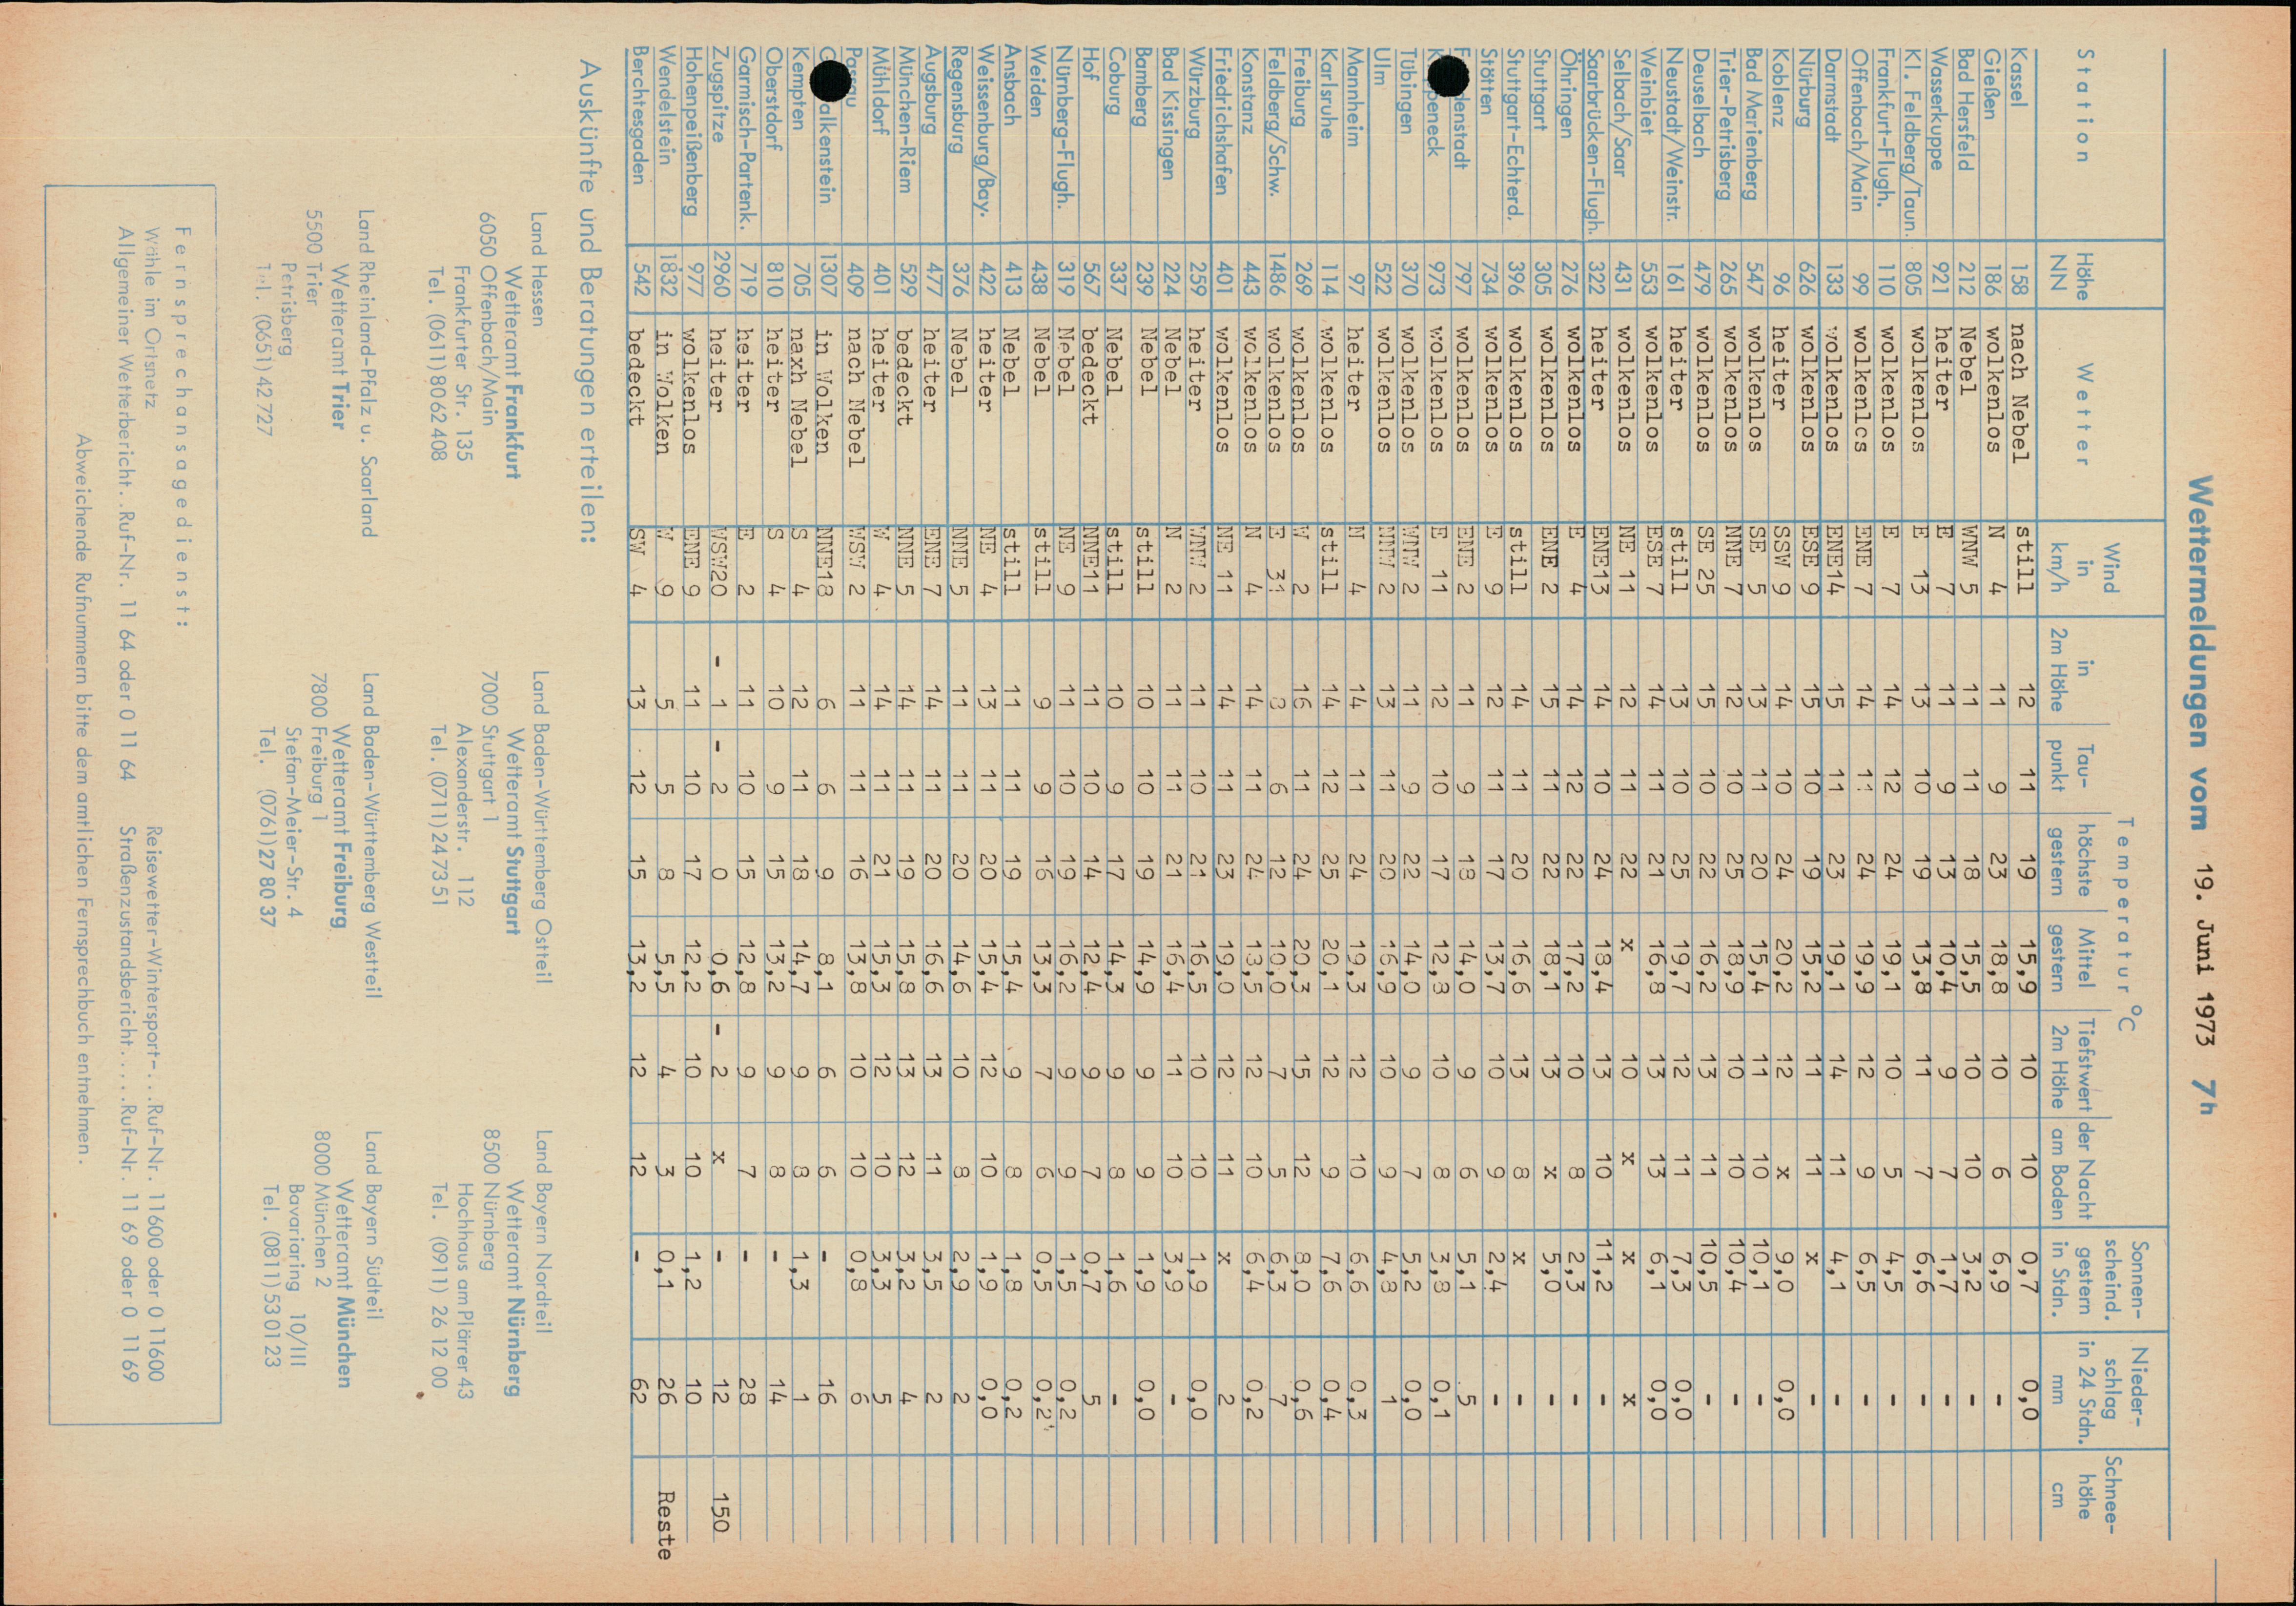 Wettermeldungen vom 19. Juni 1973 7h
Station Höhe NN Wetter Wind in km/h Temperatur °C in 2m Höhe Tau-punkt höchste gestern Mittel gestern Tiefstwert der Nacht 2m Höhe am Boden Sonnen-scheind. gestern in Stdn. Nieder-schlag in 24 Stdn. mm Schnee-höhe cm
Kassel 158 nach Nebel still 12 11 19 15,9 10 10 0,7 0,0
Gießen 186 wolkenlos N 4 11 9 23 18,8 10 6 6,9 -
Bad Hersfeld 212 Nebel WNW 5 11 11 18 15,5 10 10 3,2 -
Wasserkuppe 921 heiter E 7 11 9 13 10,4 9 7 1,7 -
Kl. Feldberg/Taun. 805 wolkenlos E 13 13 10 19 13,8 11 7 6,6 -
Frankfurt-Flugh. 110 wolkenlos E 7 14 12 24 19,1 10 5 4,5 -
Offenbach/Main 99 wolkenlos ENE 7 14 11 24 19,9 12 9 6,5 -
Darmstadt 133 wolkenlos ENE14 15 11 23 19,1 14 11 4,1 -
Nürburg 626 wolkenlos ESE 9 15 10 19 15,2 11 11 x -
Koblenz 96 heiter SSW 9 14 10 24 20,2 12 x 9,0 0,0
Bad Marienberg 547 wolkenlos SE 5 13 11 20 15,4 11 10 10,1 -
Trier-Petrisberg 265 wolkenlos NNE 7 12 10 25 18,9 10 10 10,4 -
Deuselbach 479 wolkenlos SE 25 15 10 22 16,2 13 11 10,5 -
Neustadt/Weinstr. 161 heiter still 13 10 25 19,7 12 11 7,3 0,0
Weinbiet 553 wolkenlos ESE 7 14 11 21 16,8 13 13 6,1 0,0
Selbach/Saar 431 wolkenlos NE 11 12 11 22 x 10 x x x
Saarbrücken-Flugh. 322 heiter ENE13 14 10 24 18,4 13 10 11,2 -
Öhringen 276 wolkenlos E 4 14 12 22 17,2 10 8 2,3 -
Stuttgart 305 wolkenlos ENE 2 15 11 22 18,1 13 x 5,0 -
Stuttgart-Echterd. 396 wolkenlos still 14 11 20 16,6 13 8 x -
Stötten 734 wolkenlos E 9 12 11 17 13,7 10 9 2,4 -
F denstadt 797 wolkenlos ENE 2 11 9 18 14,0 9 6 5,1 5
K peneck 973 wolkenlos E 11 12 10 17 12,8 10 8 3,8 0,1
Tübingen 370 wolkenlos WNW 2 11 9 22 14,0 9 7 5,2 0,0
Ulm 522 wolkenlos NNW 2 13 11 20 16,9 10 9 4,8 1
Mannheim 97 heiter N 4 14 11 24 19,3 12 10 6,6 0,3
Karlsruhe 114 wolkenlos still 14 12 25 20,1 12 9 7,6 0,4
Freiburg 269 wolkenlos W 2 16 11 24 20,3 15 12 8,0 0,6
Feldberg/Schw. 1486 wolkenlos E 31 8 6 12 10,0 7 5 6,3 7
Konstanz 443 wolkenlos N 4 14 11 24 18,5 12 10 6,4 0,2
Friedrichshafen 401 wolkenlos NE 11 14 11 23 19,0 12 11 x 2
Würzburg 259 heiter WNW 2 11 10 21 16,5 10 10 1,9 0,0
Bad Kissingen 224 Nebel N 2 11 11 21 16,4 11 10 3,9 -
Bamberg 239 Nebel still 10 10 19 14,9 9 9 1,9 0,0
Coburg 337 Nebel still 10 9 17 14,3 9 8 1,6 -
Hof 567 bedeckt NNE11 11 10 14 12,4 9 7 0,7 5
Nürnberg-Flugh. 319 Nebel NE 9 11 10 19 16,2 9 9 1,5 0,2
Weiden 438 Nebel still 9 9 16 13,3 7 6 0,5 0,2
Ansbach 413 Nebel still 11 11 19 15,4 9 8 1,8 0,2
Weissenburg/Bay. 422 heiter NE 4 13 11 20 15,4 12 10 1,9 0,0
Regensburg 376 Nebel NNE 5 11 11 20 14,6 10 8 2,9 2
Augsburg 477 heiter ENE 7 14 11 20 16,6 13 11 3,5 2
München-Riem 529 bedeckt NNE 5 14 11 19 15,8 13 12 3,2 4
Mühldorf 401 heiter W 4 14 11 21 15,3 12 10 3,3 5
Passau 409 nach Nebel WSW 2 11 11 16 13,8 10 10 0,8 6
G alkenstein 1307 in Wolken NNE18 6 6 9 8,1 6 6 - 16
Kempten 705 naxh Nebel S 4 12 11 18 14,7 9 8 1,3 1
Oberstdorf 810 heiter S 4 10 9 15 13,2 9 8 - 14
Garmisch-Partenk. 719 heiter E 2 11 10 15 12,8 9 7 - 28
Zugspitze 2960 heiter WSW20 - 1 - 2 0 0,6 - 2 x - 12 150
Hohenpeißenberg 977 wolkenlos ENE 9 11 10 17 12,2 10 10 1,2 10
Wendelstein 1832 in Wolken W 9 5 5 8 5,5 4 3 0,1 26 Reste
Berchtesgaden 542 bedeckt SW 4 13 12 15 13,2 12 12 - 62
Auskünfte und Beratungen erteilen:
Land Hessen
Wetteramt Frankfurt
6050 Offenbach/Main
Frankfurter Str. 135
Tel. (0611) 80 62 408
Land Baden-Württemberg Ostteil
Wetteramt Stuttgart
7000 Stuttgart 1
Alexanderstr. 112
Tel. (0711) 24 73 51
Land Bayern Nordteil
Wetteramt Nürnberg
8500 Nürnberg
Hochhaus am Plärrer 43
Tel. (0911) 26 12 00
Land Rheinland-Pfalz u. Saarland
Wetteramt Trier
5500 Trier
Petrisberg
Tel. (0651) 42 727
Land Baden-Württemberg Westteil
Wetteramt Freiburg
7800 Freiburg 1
Stefan-Meier-Str. 4
Tel. (0761) 27 80 37
Land Bayern Südteil
Wetteramt München
8000 München 2
Bavariaring 10/III
Tel. (0811) 53 01 23
Fernsprechansagedienst:
Wähle im Ortsnetz
Reisewetter-Wintersport-...Ruf-Nr. 11600 oder 0 11600
Allgemeiner Wetterbericht..Ruf-Nr. 11 64 oder 0 11 64 Straßenzustandsbericht.....Ruf-Nr. 11 69 oder 0 11 69
Abweichende Rufnummern bitte dem amtlichen Fernsprechbuch entnehmen.